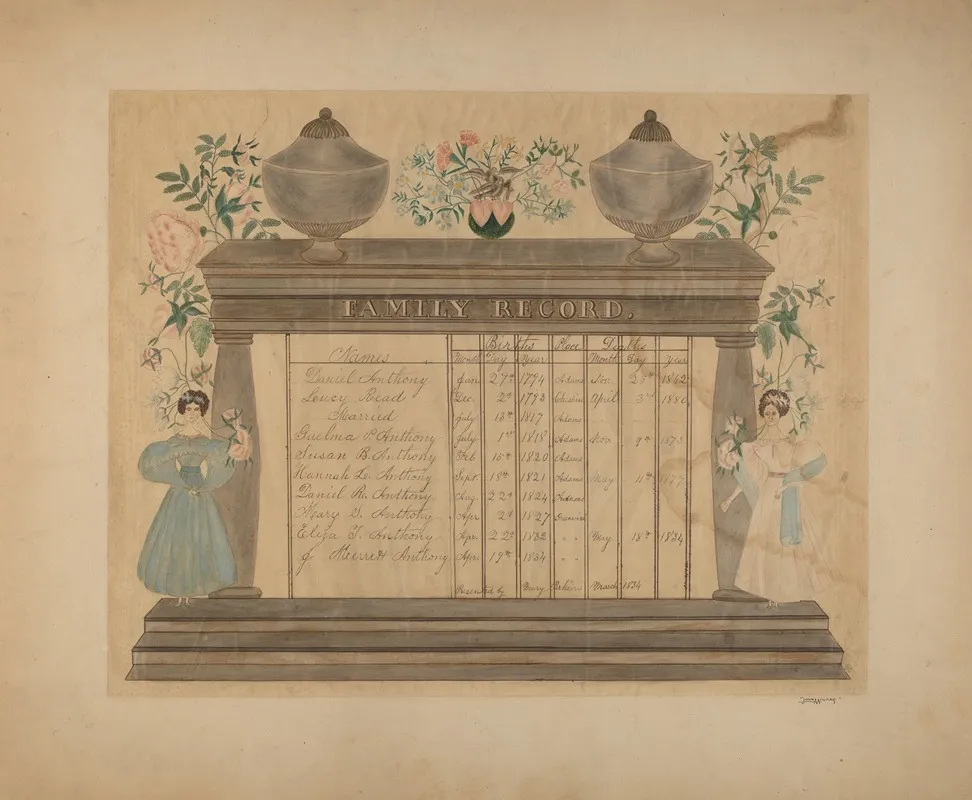 FAMILY RECORD.
Births Place Deaths
Names Month Day Year Month Day Year
Daniel Anthony Jan. 27th 1794 Adams Nov. 25th 1862
Lucy Read Dec. 2d 1793 Cheshire April 3rd 1880
Married July 13th 1817 Adams
Guelma P Anthony July 1st 1818 Adams Nov. 9th 1873
Susan B. Anthony Feb 15th 1820 Adams
Hannah L. Anthony Sept. 15th 1821 Adams May 11th 1877
Daniel R. Anthony Aug. 22d 1824 Adams
Mary S. Anthony Apr. 2d 1827
Eliza T. Anthony Apr. 22d 1832 " " May 18th 1834
J Merritt Anthony Apr. 19th 1834
by Mary March 1834